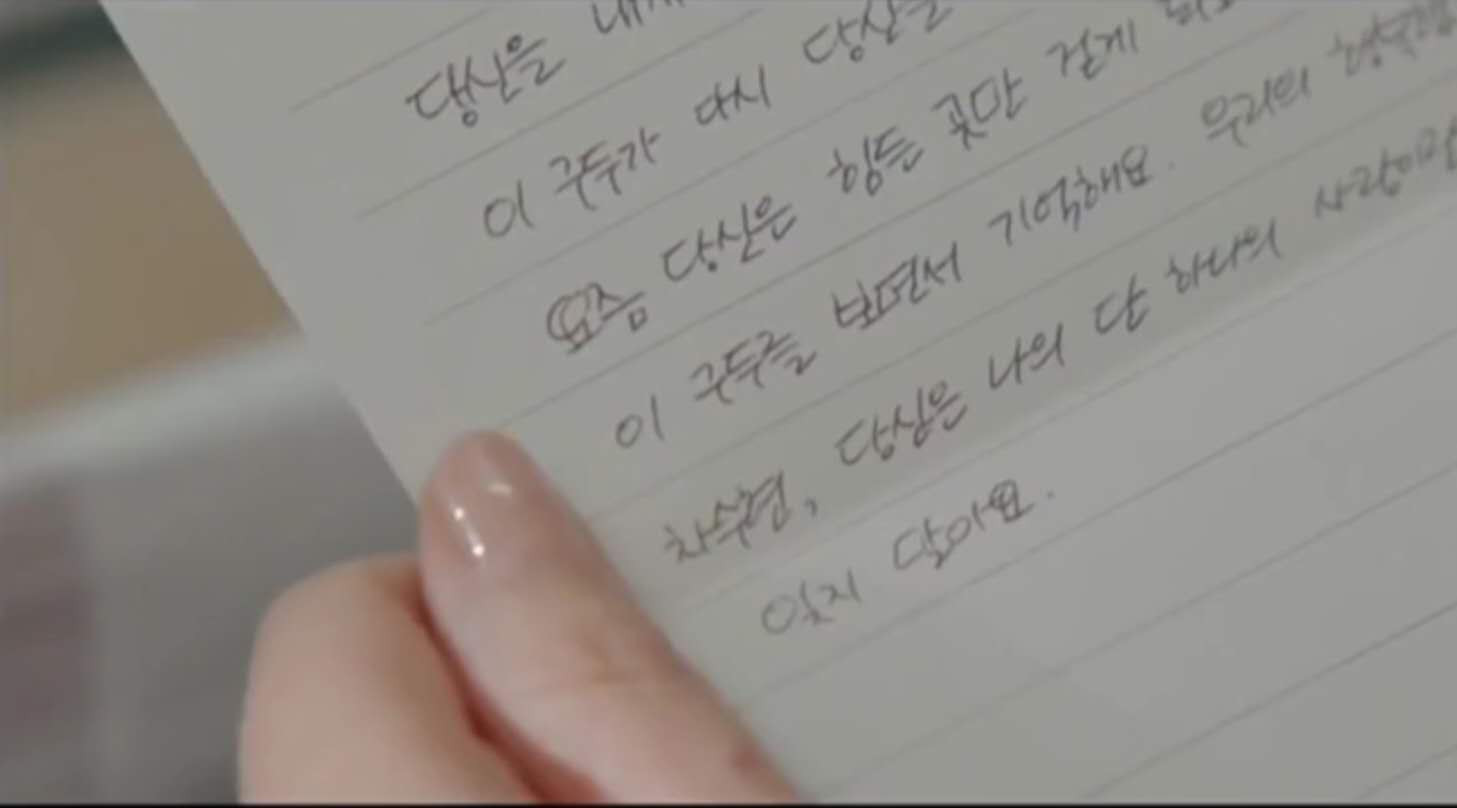 당신을
이 구두가 다시 당신을
요즘 당신은 힘든 곳만 걷게
이 구두를 보면서 기억해요. 우리의
차수현, 당신은 나의 단 하나의
잊지 말아요.